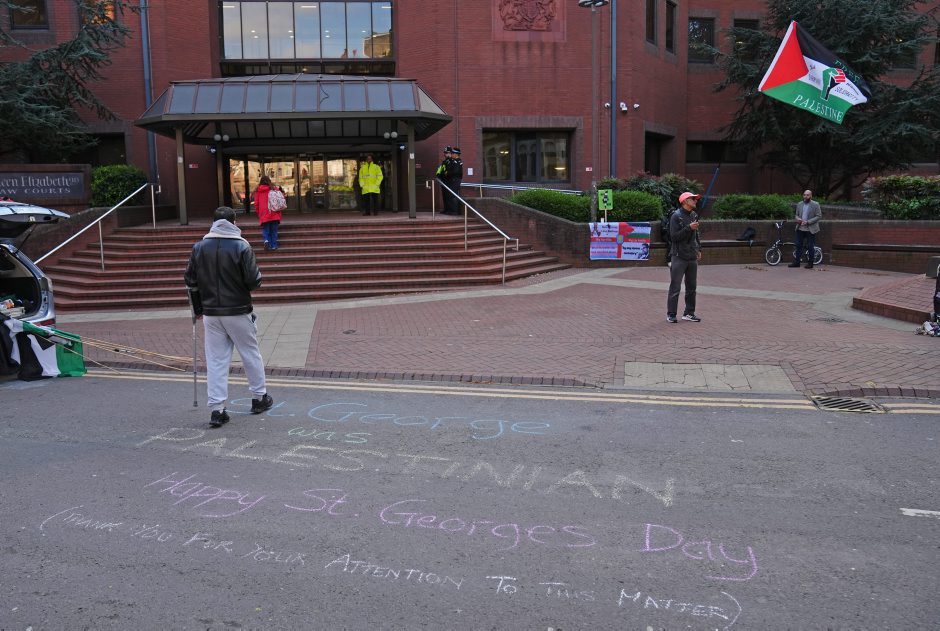 een Elizabeth II
aw Courts
SOLIDARITY
PALESTINE
St. George
was
PALESTINIAN
Happy St. Georges Day
(THANK YOU FOR YOUR ATTENTION TO THIS MATTER)